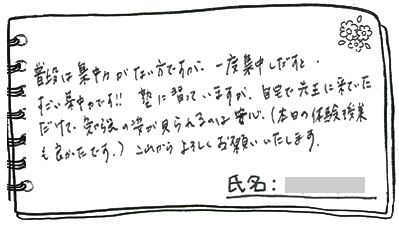 普段は集中力がない方ですが、一度集中しだすと、
すごい集中力です!! 塾に習っていますが、自宅で先生に来ていた
だけて、勉強の姿が見られるのは安心。(本日の体験授業
も良かったです。) これからよろしくお願いいたします.
氏名: